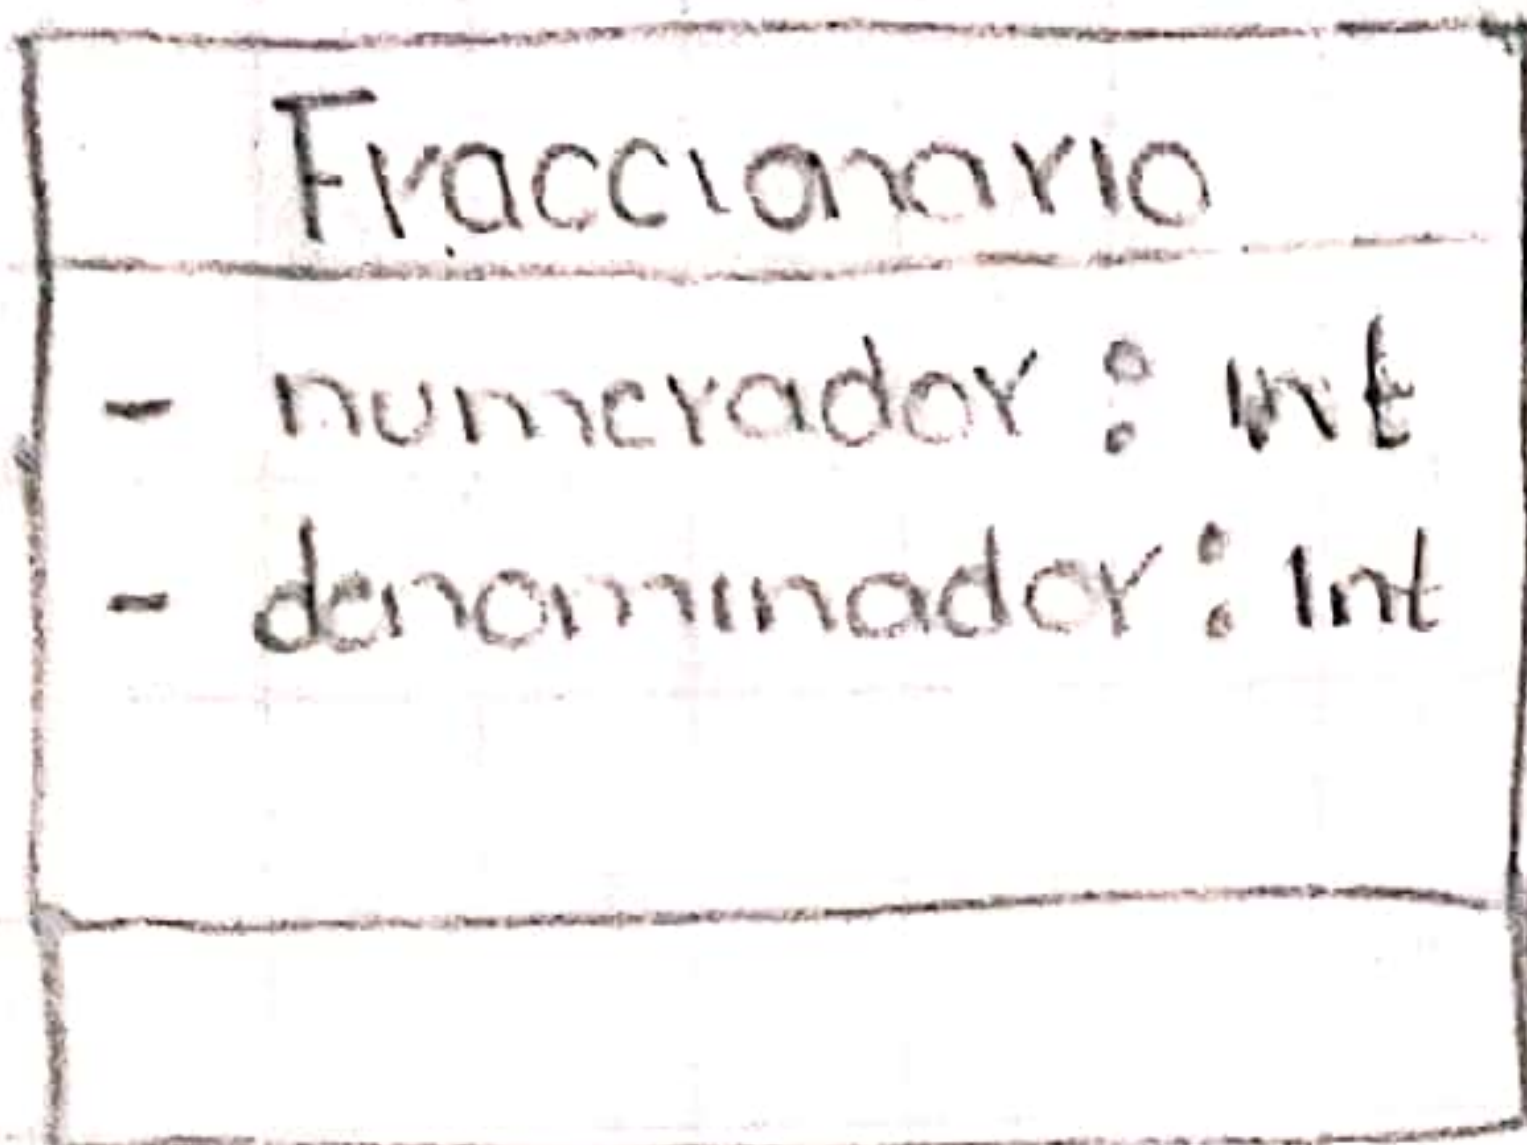 Fraccionario
- numerador : Int
- denominador : Int